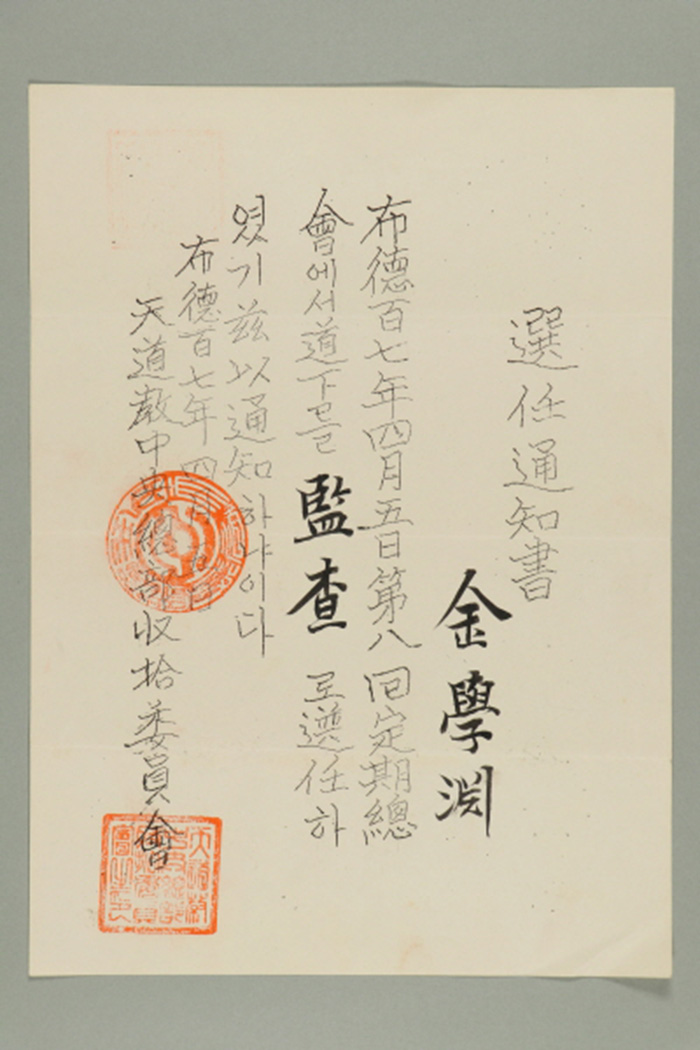 選任通知書
金學淵
布德百七年四月五日第八回定期總
會에서道下를監査로選任하
엿기玆以通知하나이다
布德百七年四月五日
天道敎中央總部收拾委員會